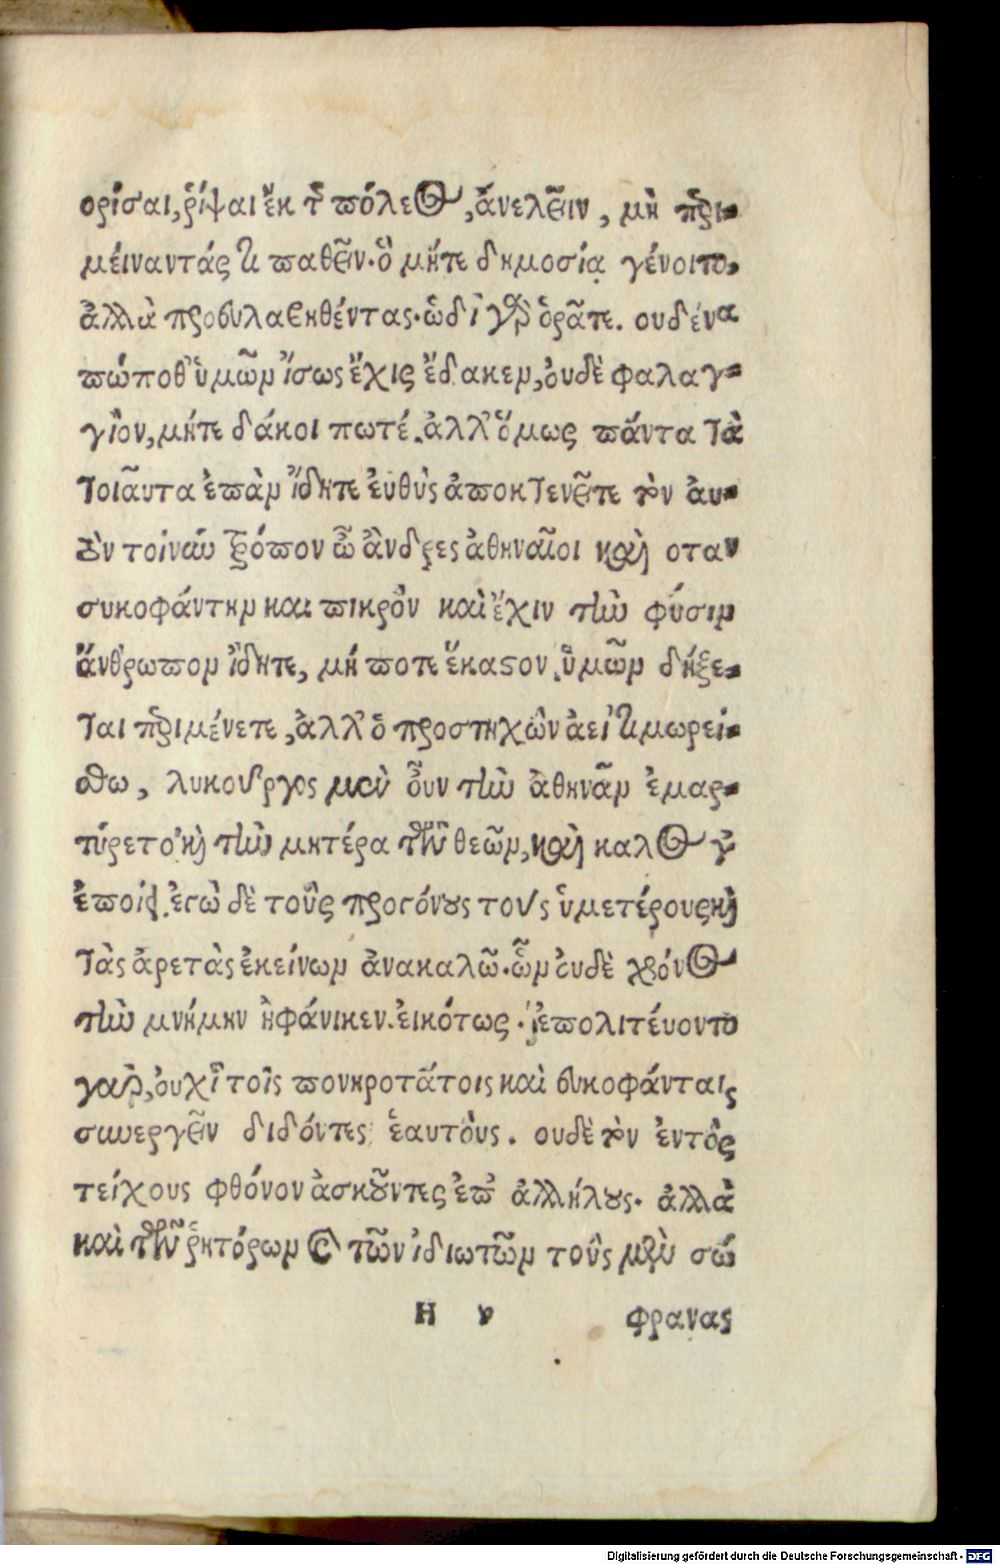 ορίσαι, ῥίψαι ἔκ τ͂ πόλεως, ἄνελεῖν, μὴ περι-
μέιναντάς τι παθεῖν. ὃ μήτε δημοσίᾳ γένοιτο,
ἀλλὰ προευλαβηθέντας. ὡδὶ γὰρ ὁρᾶτε. ουδένα
πώποθ᾽ ὑμῶν ἴσως ἔχις ἔδακεν, ὀυδὲ φαλαγ-
γῖον, μήτε δάκοι ποτέ. ἀλλ᾽ ὅμως πάντα τὰ
τοιᾶυτα ἐπὰν ἴδητε ἐυθὺς ἀποκτενεῖτε τὸν ἀυ-
τὸν τοίνυν τρόπον ὦ ἄνδρες ἀθηναῖοι καὶ οταν
συκοφάντην και πικρὸν καὶ ἔχιν τὴν φύσιν
ἄνθρωπον ἴδητε, μή ποτε ἕκαστον ὑμῶν δήξε-
ται περιμένετε, ἀλλ᾽ ὁ προστηχὼν ἀεὶ τιμωρεί-
σθω, λυκοῦργος μὲν οὖν τὴν ἀθηνᾶν ἐμαρ-
τύρετο κὴ τὴν μητέρα τῶν θεῶν, καὶ καλῶς γ᾽
ἐποίει. ἐγὼ δὲ τοὺς προγόνους τοὺς ὑμετέρους κὴ
τὰς ἀρετὰς ἐκείνων ἀνακαλῶ. ὧν ὀυδὲ χρόνος
τὴν μνήμην ἠφάνικεν. ἐικότως. ἐπολιτέυοντο
γαρ, ὀυχὶ τοῖς πονηροτάτοις καὶ συκοφάνταις
συνεργεῖν διδόντες ἑαυτὸυς. ουδὲ τὸν ἐντὸς
τείχους φθόνον ἀσκοῦντες ἐπ᾽ ἀλλήλους. ἀλλὰ
καὶ τῶν ῥητόρων καὶ τῶν ἰδιωτῶν τοὺς μὲν σώ
Η ν φρανας
Digitalisierung gefördert durch die Deutsche Forschungsgemeinschaft - DFG